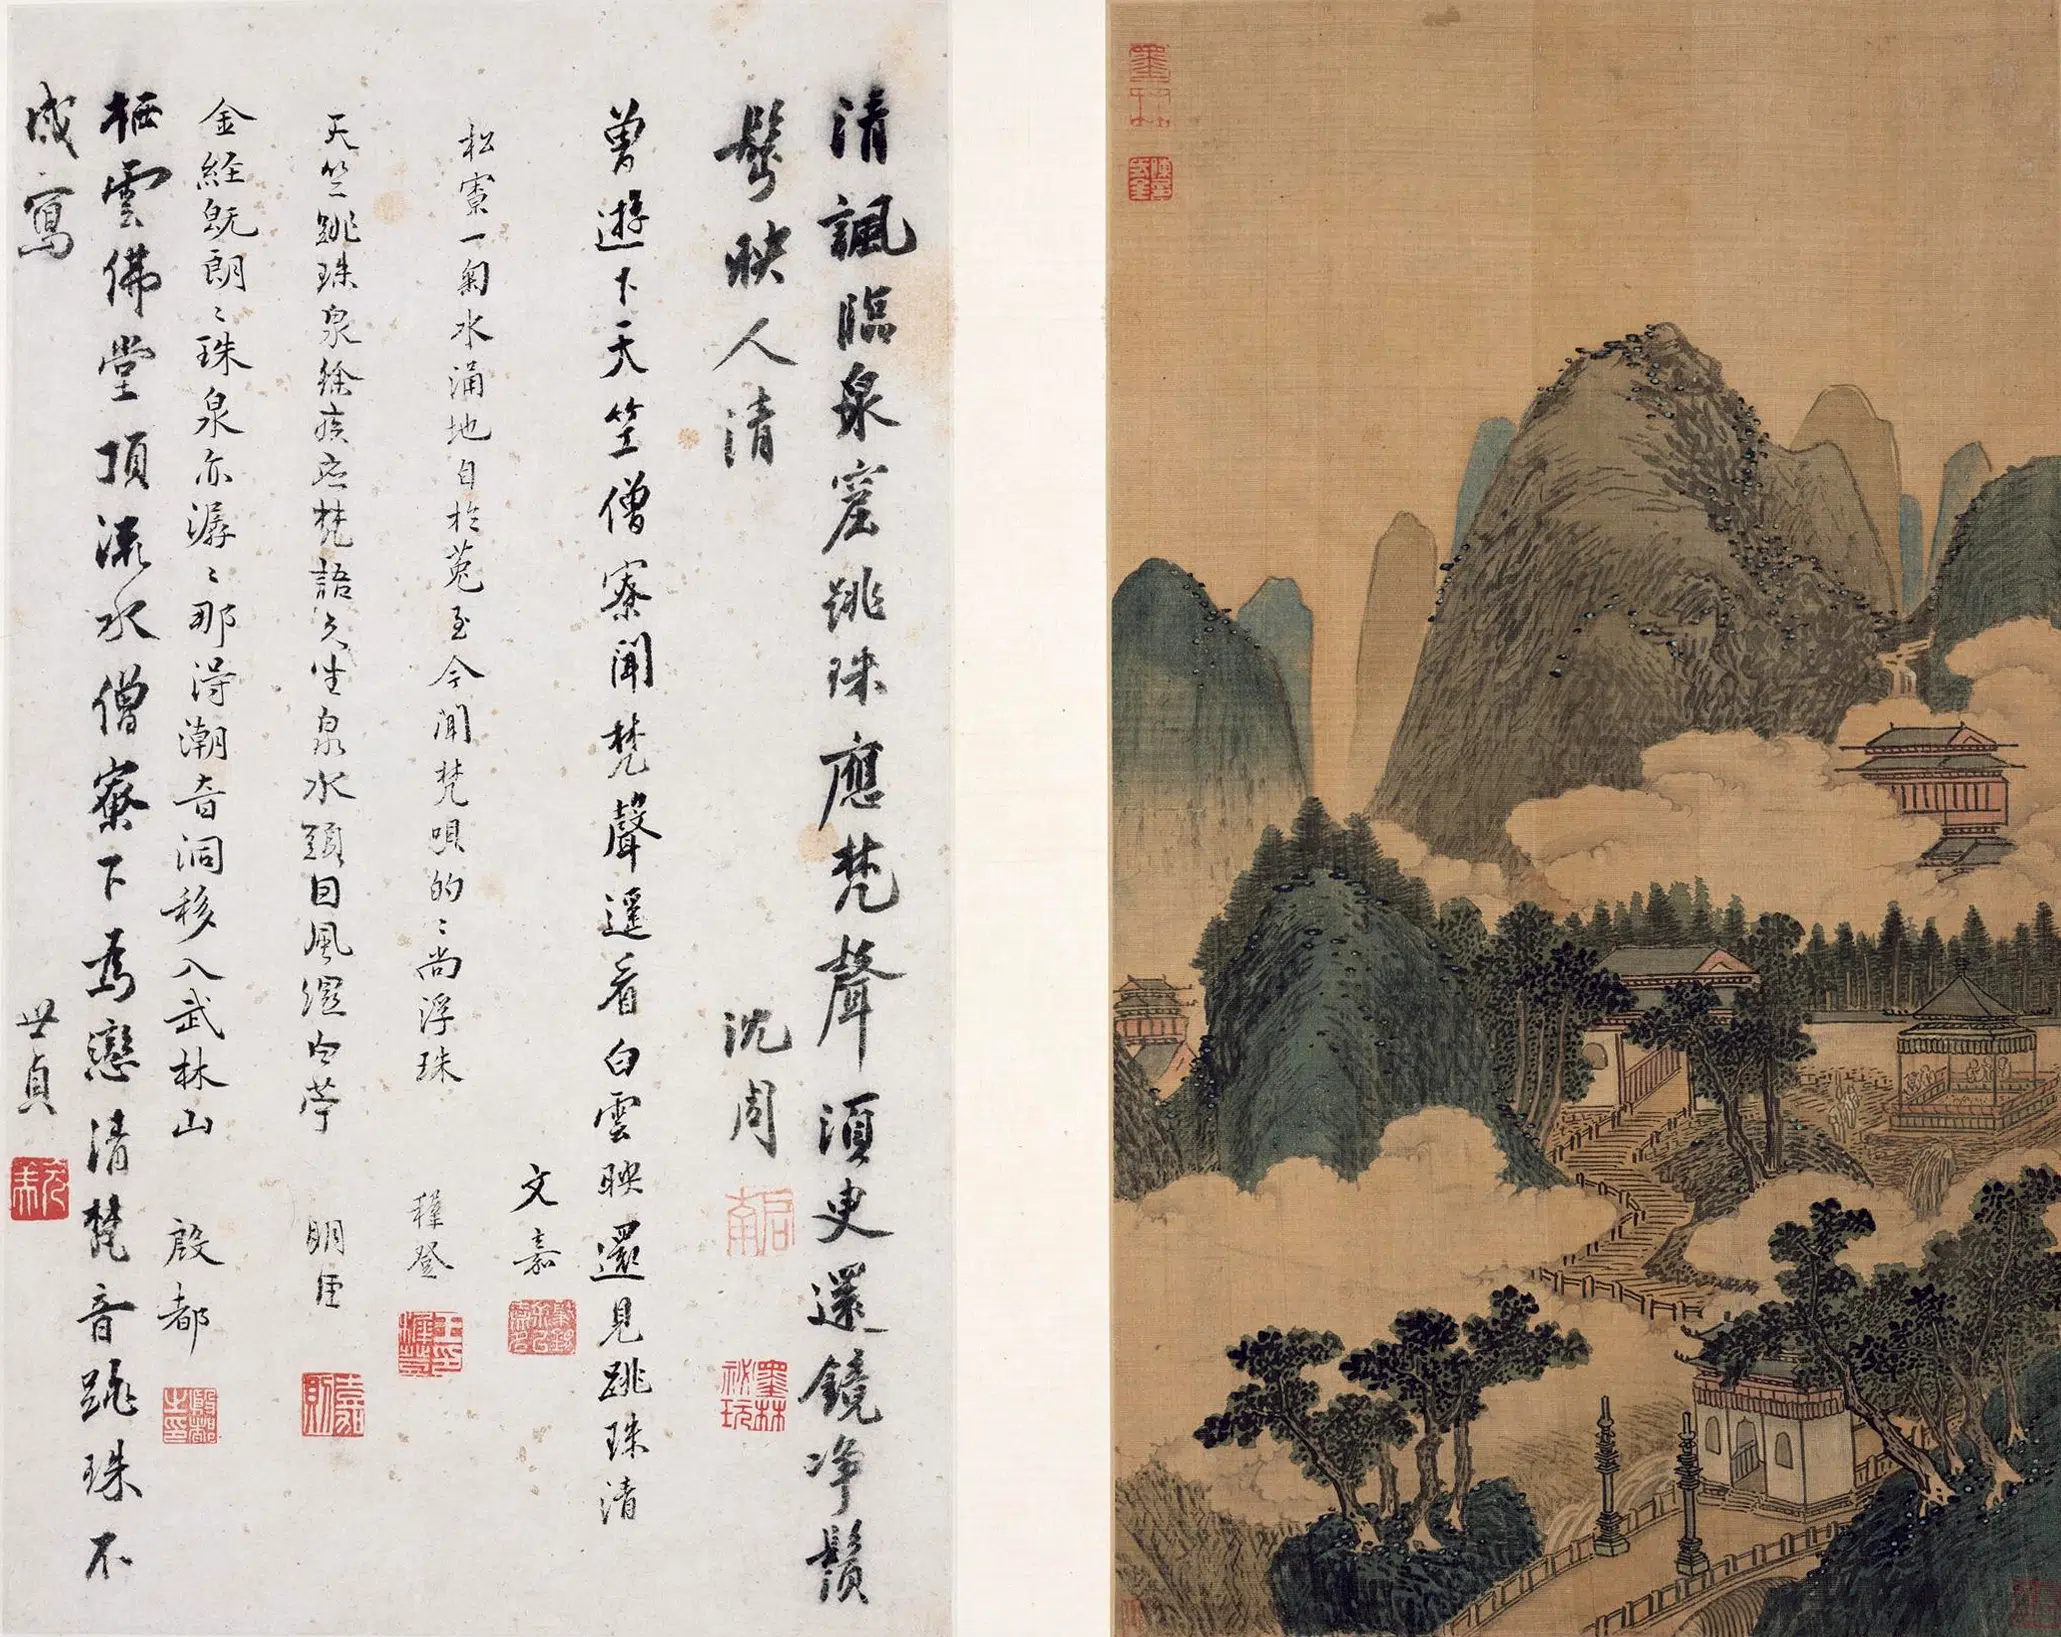 清諷臨泉窟跳珠應梵聲須臾還鏡淨鬚
髩映人清
沈周
曾遊下天竺僧寮聞梵聲遥看白雲映還見跳珠清
文嘉
松寮一匊水涌地自於菟至今聞梵唄的〻尚浮珠
穉登
天竺跳珠泉徐疾应梵語久坐泉水頭目風溼白苧
明臣
金経既朗〻珠泉亦潺〻那淂潮音洞移入武林山
殷都
栖雲佛堂頂流水僧寮下為戀清梵音跳珠不
成寫
世貞
墨林
墨林祕玩